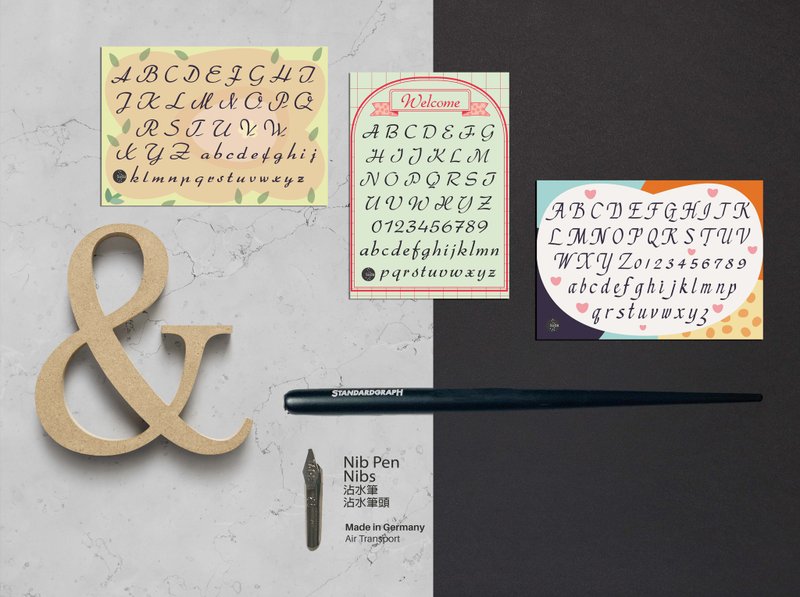 A B C D E F G H I
J K L M N O P Q
R S T U V W
X Y Z a b c d e f g h i j
k l m n p q r s t u v w x y z
Welcome
A B C D E F G
H I J K L M
N O P Q R S T
U V W X Y Z
0123456789
abcdefghijklmn
pqrstuvwxyz
A B C D E F G H I J K
L M N O P Q R S T U V
W X Y Z 0 1 2 3 4 5 6 7 8 9
a b c d e f g h i j k l m n p
q r s t u v w x y z
&
STANDARDGRAPH
Nib Pen
Nibs
沾水筆
沾水筆頭
Made in Germany
Air Transport